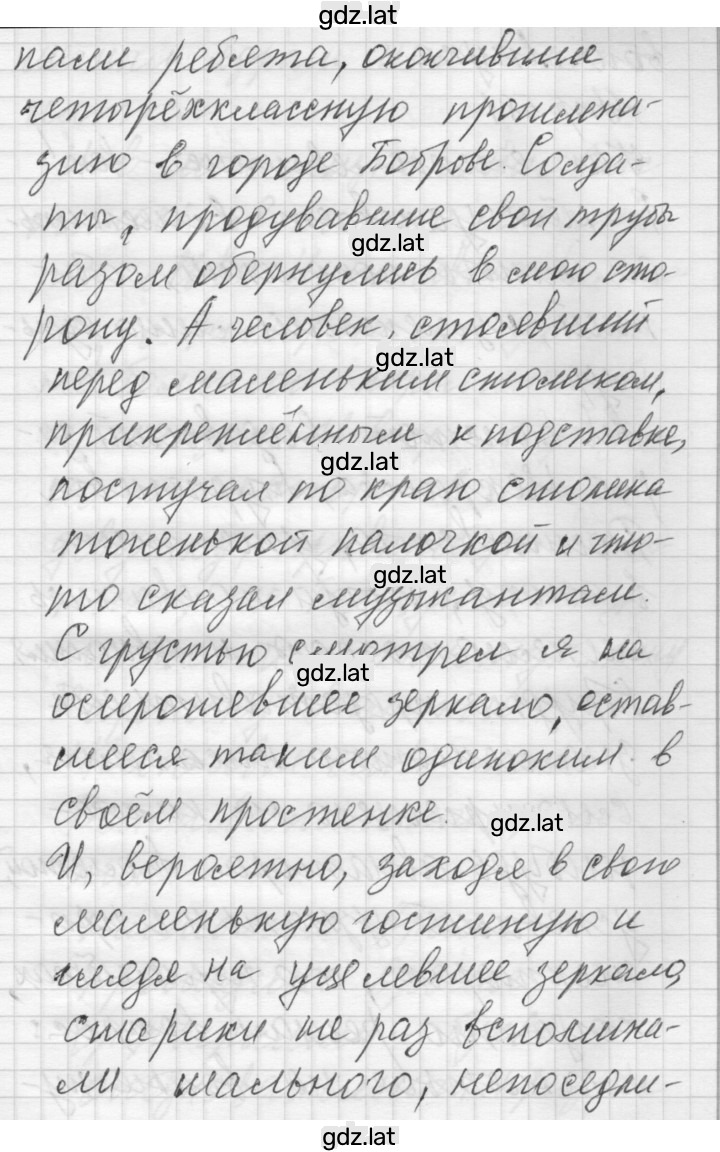 gdz.lat
пали ребята, окончившие
четырёхклассную прогимна-
зию в городе Боброве. Солда-
ты, продувавшие свои трубы
gdz.lat
разом обернулись в мою сто-
рону. А человек, стоявший
gdz.lat
перед маленьким столиком,
прикреплённым к подставке,
gdz.lat
постучал по краю столика
тоненькой палочкой и что-
gdz.lat
то сказал музыкантам.
С грустью смотрел я на
gdz.lat
осиротевшее зеркало, остав-
шееся таким одиноким в
своём простенке.
gdz.lat
И, вероятно, заходя в свою
маленькую гостиную и
глядя на уцелевшее зеркало,
старики не раз вспомина-
ли шального, непоседли-
gdz.lat